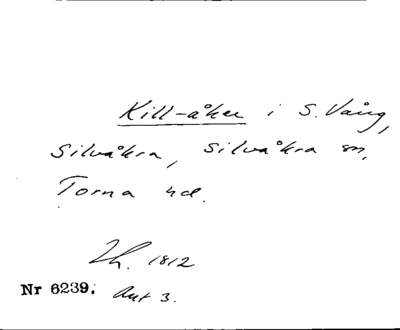 Kill-åker i S. Vång,
Silvåkra, Silvåkra sn,
Torna hd.
1812
Nr 6239. Akt 3.